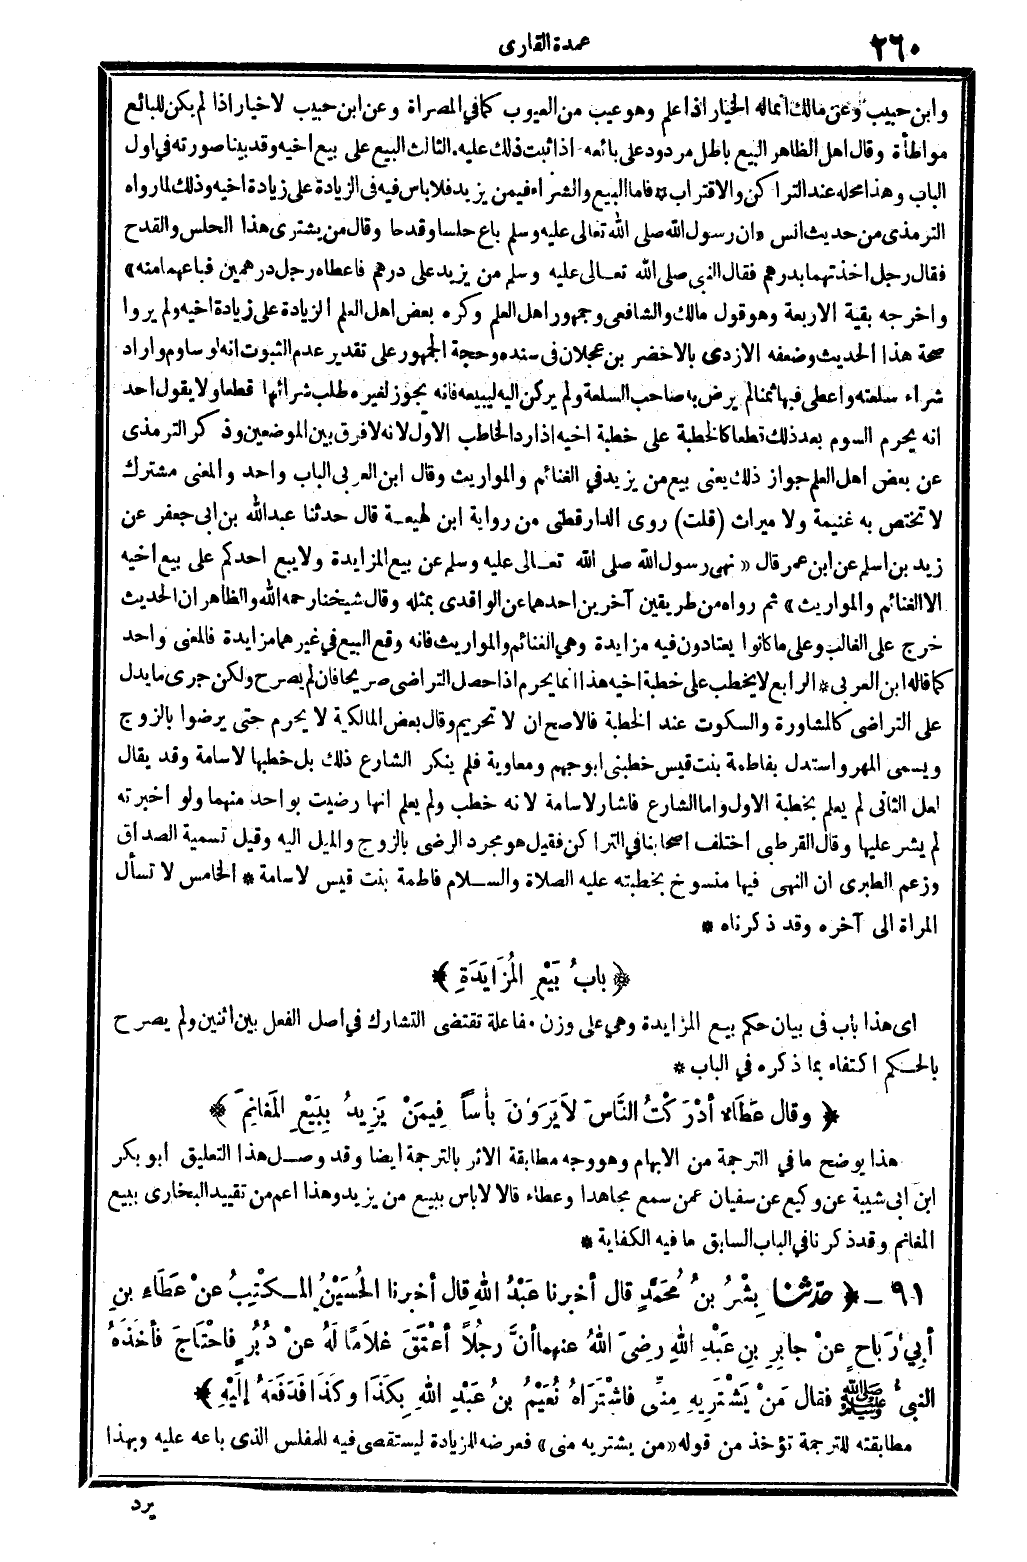 ٢٦٠
عمدة القارى
وابن حبيب وعن مالك انما له الخيار اذا علم وهو عيب من العيوب كما في المصراة وعن ابن حبيب لا خيار اذا لم يكن للبائع
مواطأة وقال اهل الظاهر البيع باطل مردود على بائعه اذا ثبت ذلك عليه. الثالث البيع على بيع اخيه وقد بينا صورته في اول
الباب وهذا محله عند التراكن والاقتراب * فاما البيع والشراء فيمن يزيد فلا باس فيه فى الزيادة على زيادة اخيه وذلك لما رواه
الترمذى من حديث انس «ان رسول الله صلى الله تعالى عليه وسلم باع حلسا وقدحا وقال من يشترى هذا الحلس والقدح
فقال رجل اخذتهما بدرهم فقال النبي صلى الله تعـالى عليه وسلم من يزيد على درهم فاعطاه رجل درهمين فباعهما منه»
واخرجه بقية الاربعة وهو قول مالك والشافعى وجمهور اهل العلم وكره بعض اهل العلم الزيادة على زيادة اخيه ولم يروا
صحة هذا الحديث وضعفه الازدى بالاخضر بن عجلان فى سنده وحجة الجمهور على تقدير عدم الثبوت انه لو ساوم واراد
شراء سلعته واعطى فيها ثمنا لم يرض به صاحب السلعة ولم يركن اليه ليبيعه فانه يجوز لغيره طلب شرائها قطعا ولا يقول احد
انه يحرم السوم بعد ذلك قطعا كالخطبة على خطبة اخيه اذا رد الخاطب الاول لانه لا فرق بين الموضعين وذكر الترمذى
عن بعض اهل العلم جواز ذلك يعنى بيع من يزيد في الغنائم والمواريث وقال ابن العربى الباب واحد والمعنى مشترك
لا تختص به غنيمة ولا ميراث (قلت) روى الدارقطى من رواية ابن لهيعـة قال حدثنا عبدالله بن ابى جعفر عن
زيد بن اسلم عن ابن عمر قال «نهى رسول الله صلى الله تعـالى عليه وسلم عن بيع المزايدة ولا يبع احدكم على بيع اخيه
الا الغنائم والمواريث» ثم رواه من طريقين آخرين احدهما عن الواقدى بمثله وقال شيخنا رحمه الله والظاهر ان الحديث
خرج على الغالب وعلى ما كانوا يعتادون فيه مزايدة وهي الغنائم والمواريث فانه وقع البيع في غيرهما مزايدة فالمعنى واحد
كما قاله ابن العربى * الرابع لا يخطب على خطبة اخيه هذا انما يحرم اذا حصل التراضى صريحا فان لم يصرح ولكن جرى ما يدل
على التراضى كالمشاورة والسكوت عند الخطبة فالاصح ان لا تحريم وقال بعض المالكية لا يحرم حتى يرضوا بالزوج
ويسمى المهر واستدل بفاطمة بنت قيس خطبنى ابوجهم ومعاوية فلم ينكر الشارع ذلك بل خطبها لاسامة وقد يقال
لعل الثانى لم يعلم بخطبة الاول واما الشارع فاشار لاسامة لا انه خطب ولم يعلم انها رضيت بواحد منهما ولو اخبرته
لم يشر عليها وقال القرطبى اختلف اصحابنا في التراكن فقيل هو مجرد الرضى بالزوج والميل اليه وقيل تسمية الصداق
وزعم الطبرى ان النهى فيها منسوخ بخطبته عليه الصلاة والسـلام فاطمة بنت قيس لاسامة * الخامس لا تسأل
المراة الى آخره وقد ذكرناه *
﴿ بابُ بَيْعِ المُزَايَدَةِ ﴾
اى هذا باب فى بيان حكم بيع المزايدة وهي على وزن مفاعلة تقتضى التشارك في اصل الفعل بين اثنين ولم يصرح
بالحـكم اكتفاء بما ذكره في الباب *
﴿ وقال عَطَاء أَدْرَكْتُ النَّاسَ لاَ يَرَوْنَ بأْساً فِيمَنْ يَزِيدُ بِبَيْعِ المَغَانِمِ ﴾
هذا يوضح ما في الترجمة من الابهام وهو وجه مطابقة الاثر بالترجمة ايضا وقد وصـل هذا التعليق ابو بكر
ابن ابى شيبة عن وكيع عن سفيان عمن سمع مجاهدا وعطاء قالا لا باس ببيع من يزيد وهذا اعم من تقييد البخارى ببيع
المغانم وقد ذكرنا في الباب السابق ما فيه الكفاية *
٩١ ـ ﴿ حدّثنا بِشْرُ بنُ مُحَمَّدٍ قال أخبرنا عَبْدُ اللهِ قال أخبرنا الحُسَيْنُ المـكْتِبُ عنْ عَطَاءِ بنِ
أبِي رَباحٍ عنْ جابِرِ بنِ عَبْدِ اللهِ رضىَ اللهُ عنهما أنَّ رجُلاً أعْتَقَ غلاَمًا لَهُ عنْ دُبُرٍ فاحْتَاجَ فأخَذَهُ
النبىُّ ﷺ فقال مَنْ يَشْتَرِيهِ مِنِّى فاشْتَرَاهُ نُعَيْمُ بنُ عَبْدِ اللهِ بِكَذَا وكَذَا فَدَفَعَهُ إلَيْهِ ﴾
مطابقته للترجمة تؤخذ من قوله «من يشتريه منى» فعرضه للزيادة ليستقصى فيه للمفلس الذى باعه عليه وبهذا
يرد